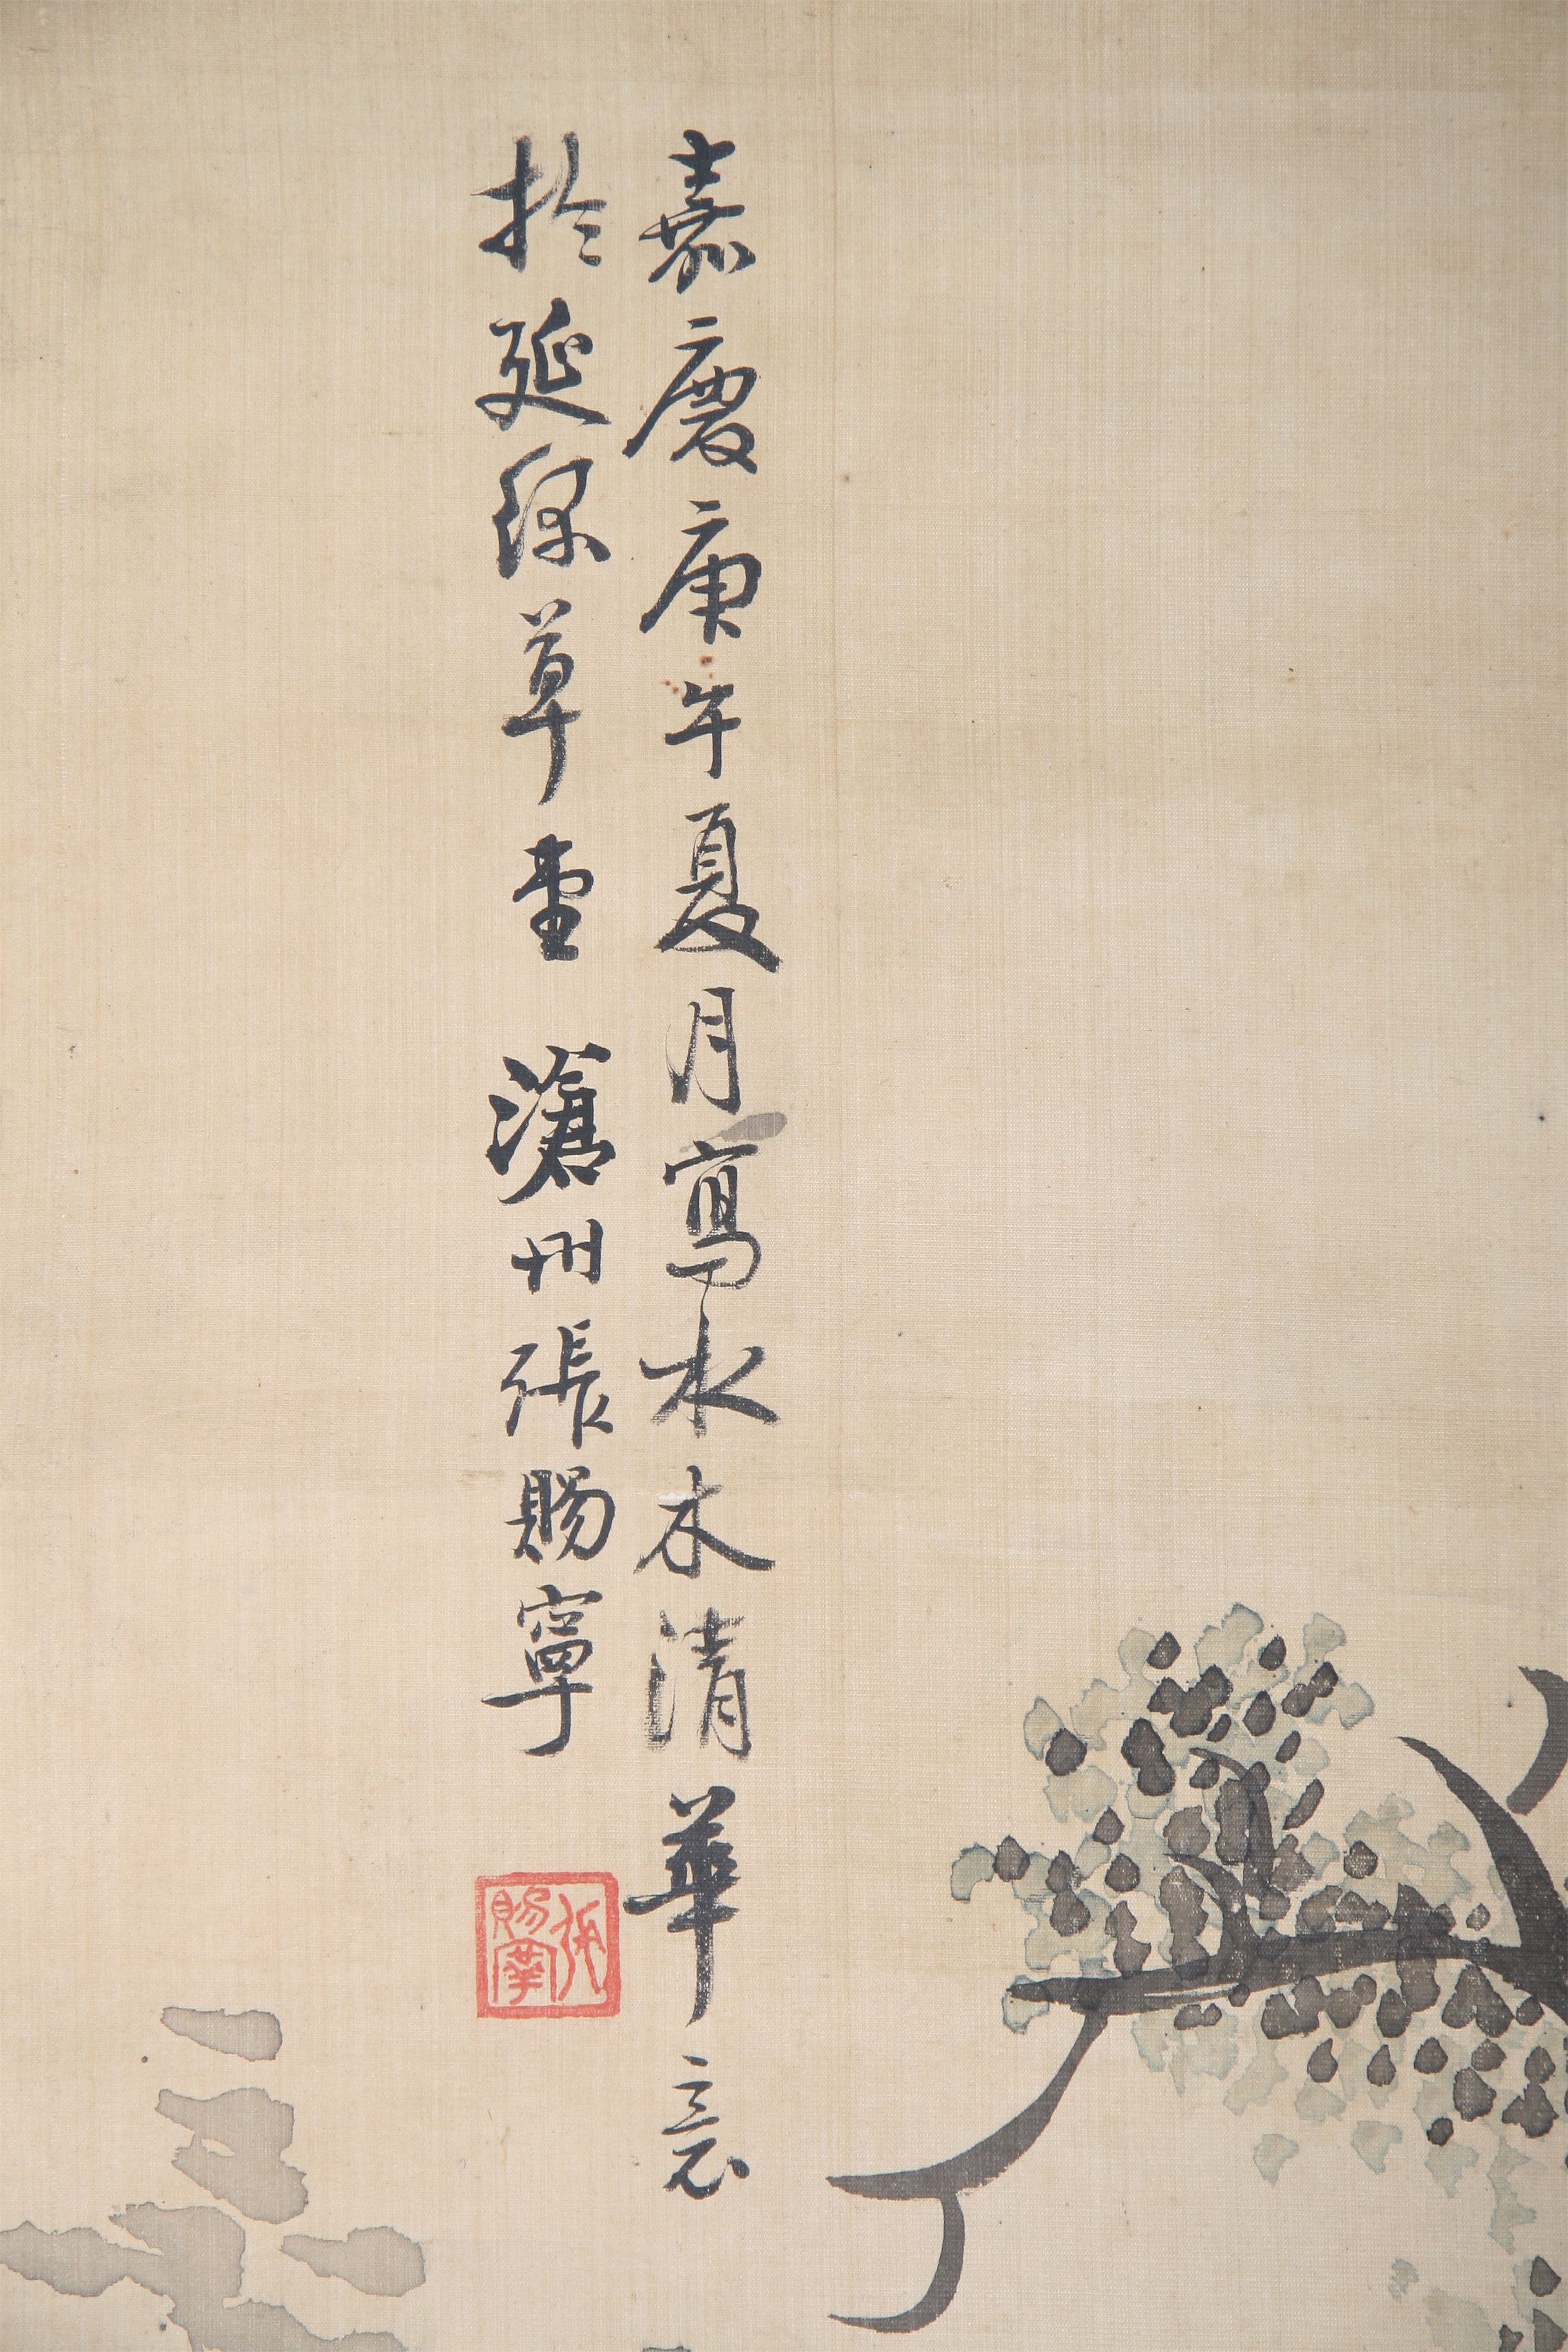 嘉慶庚午夏月寫水木清華意
於延綠草堂 滄州張賜寧
張賜寧